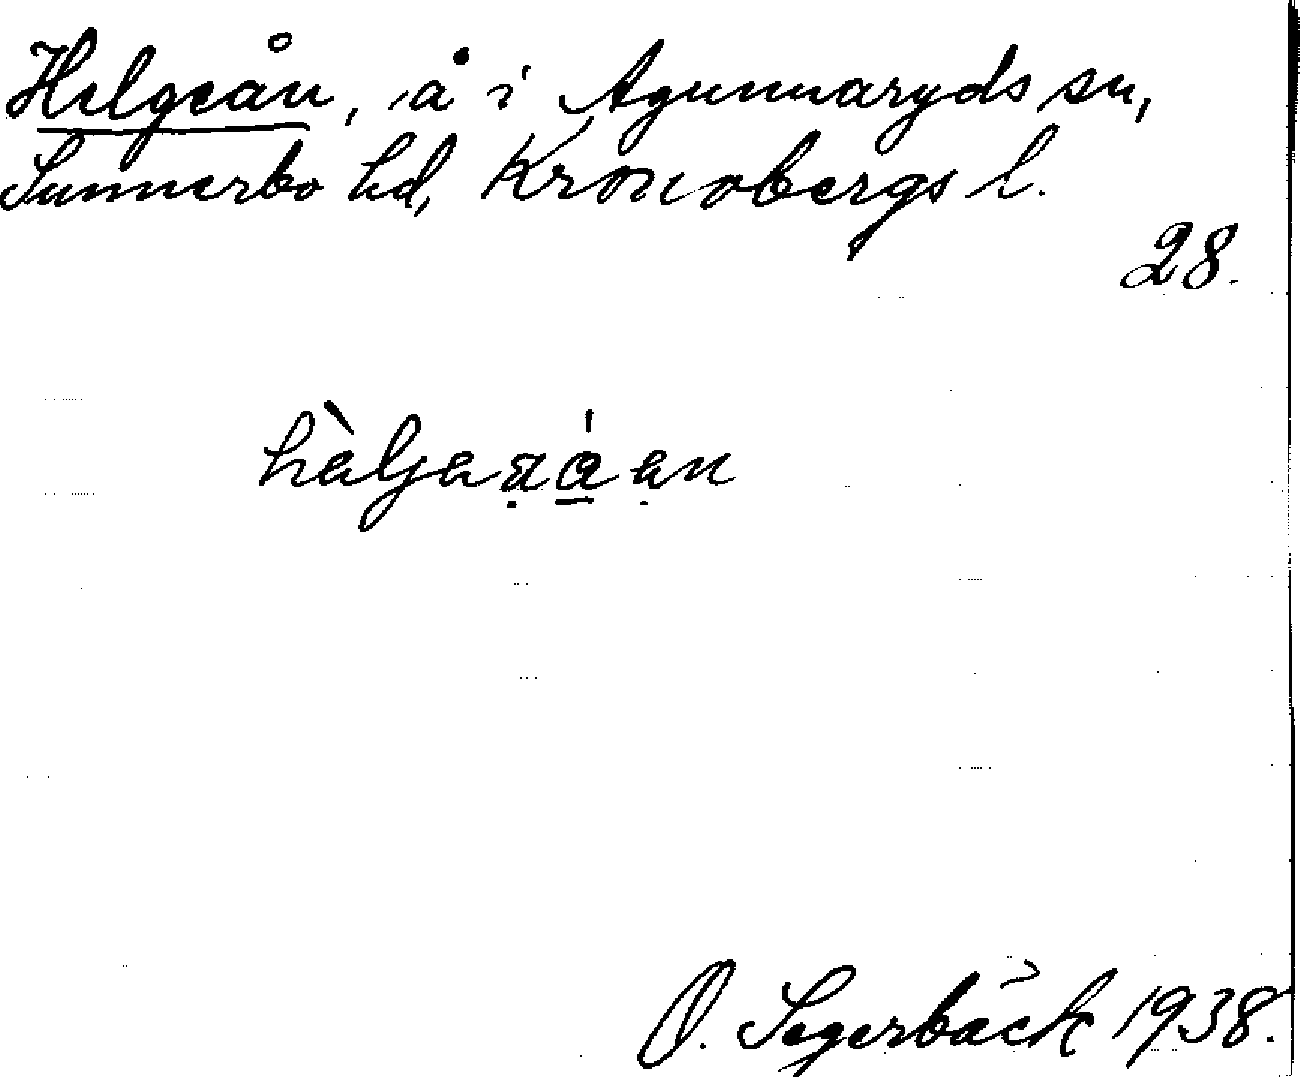 Helgeån, å i Agunnaryds sn,
Sunnerbo hd, Kronobergs l.
28.
O. Segerbäck 1938.